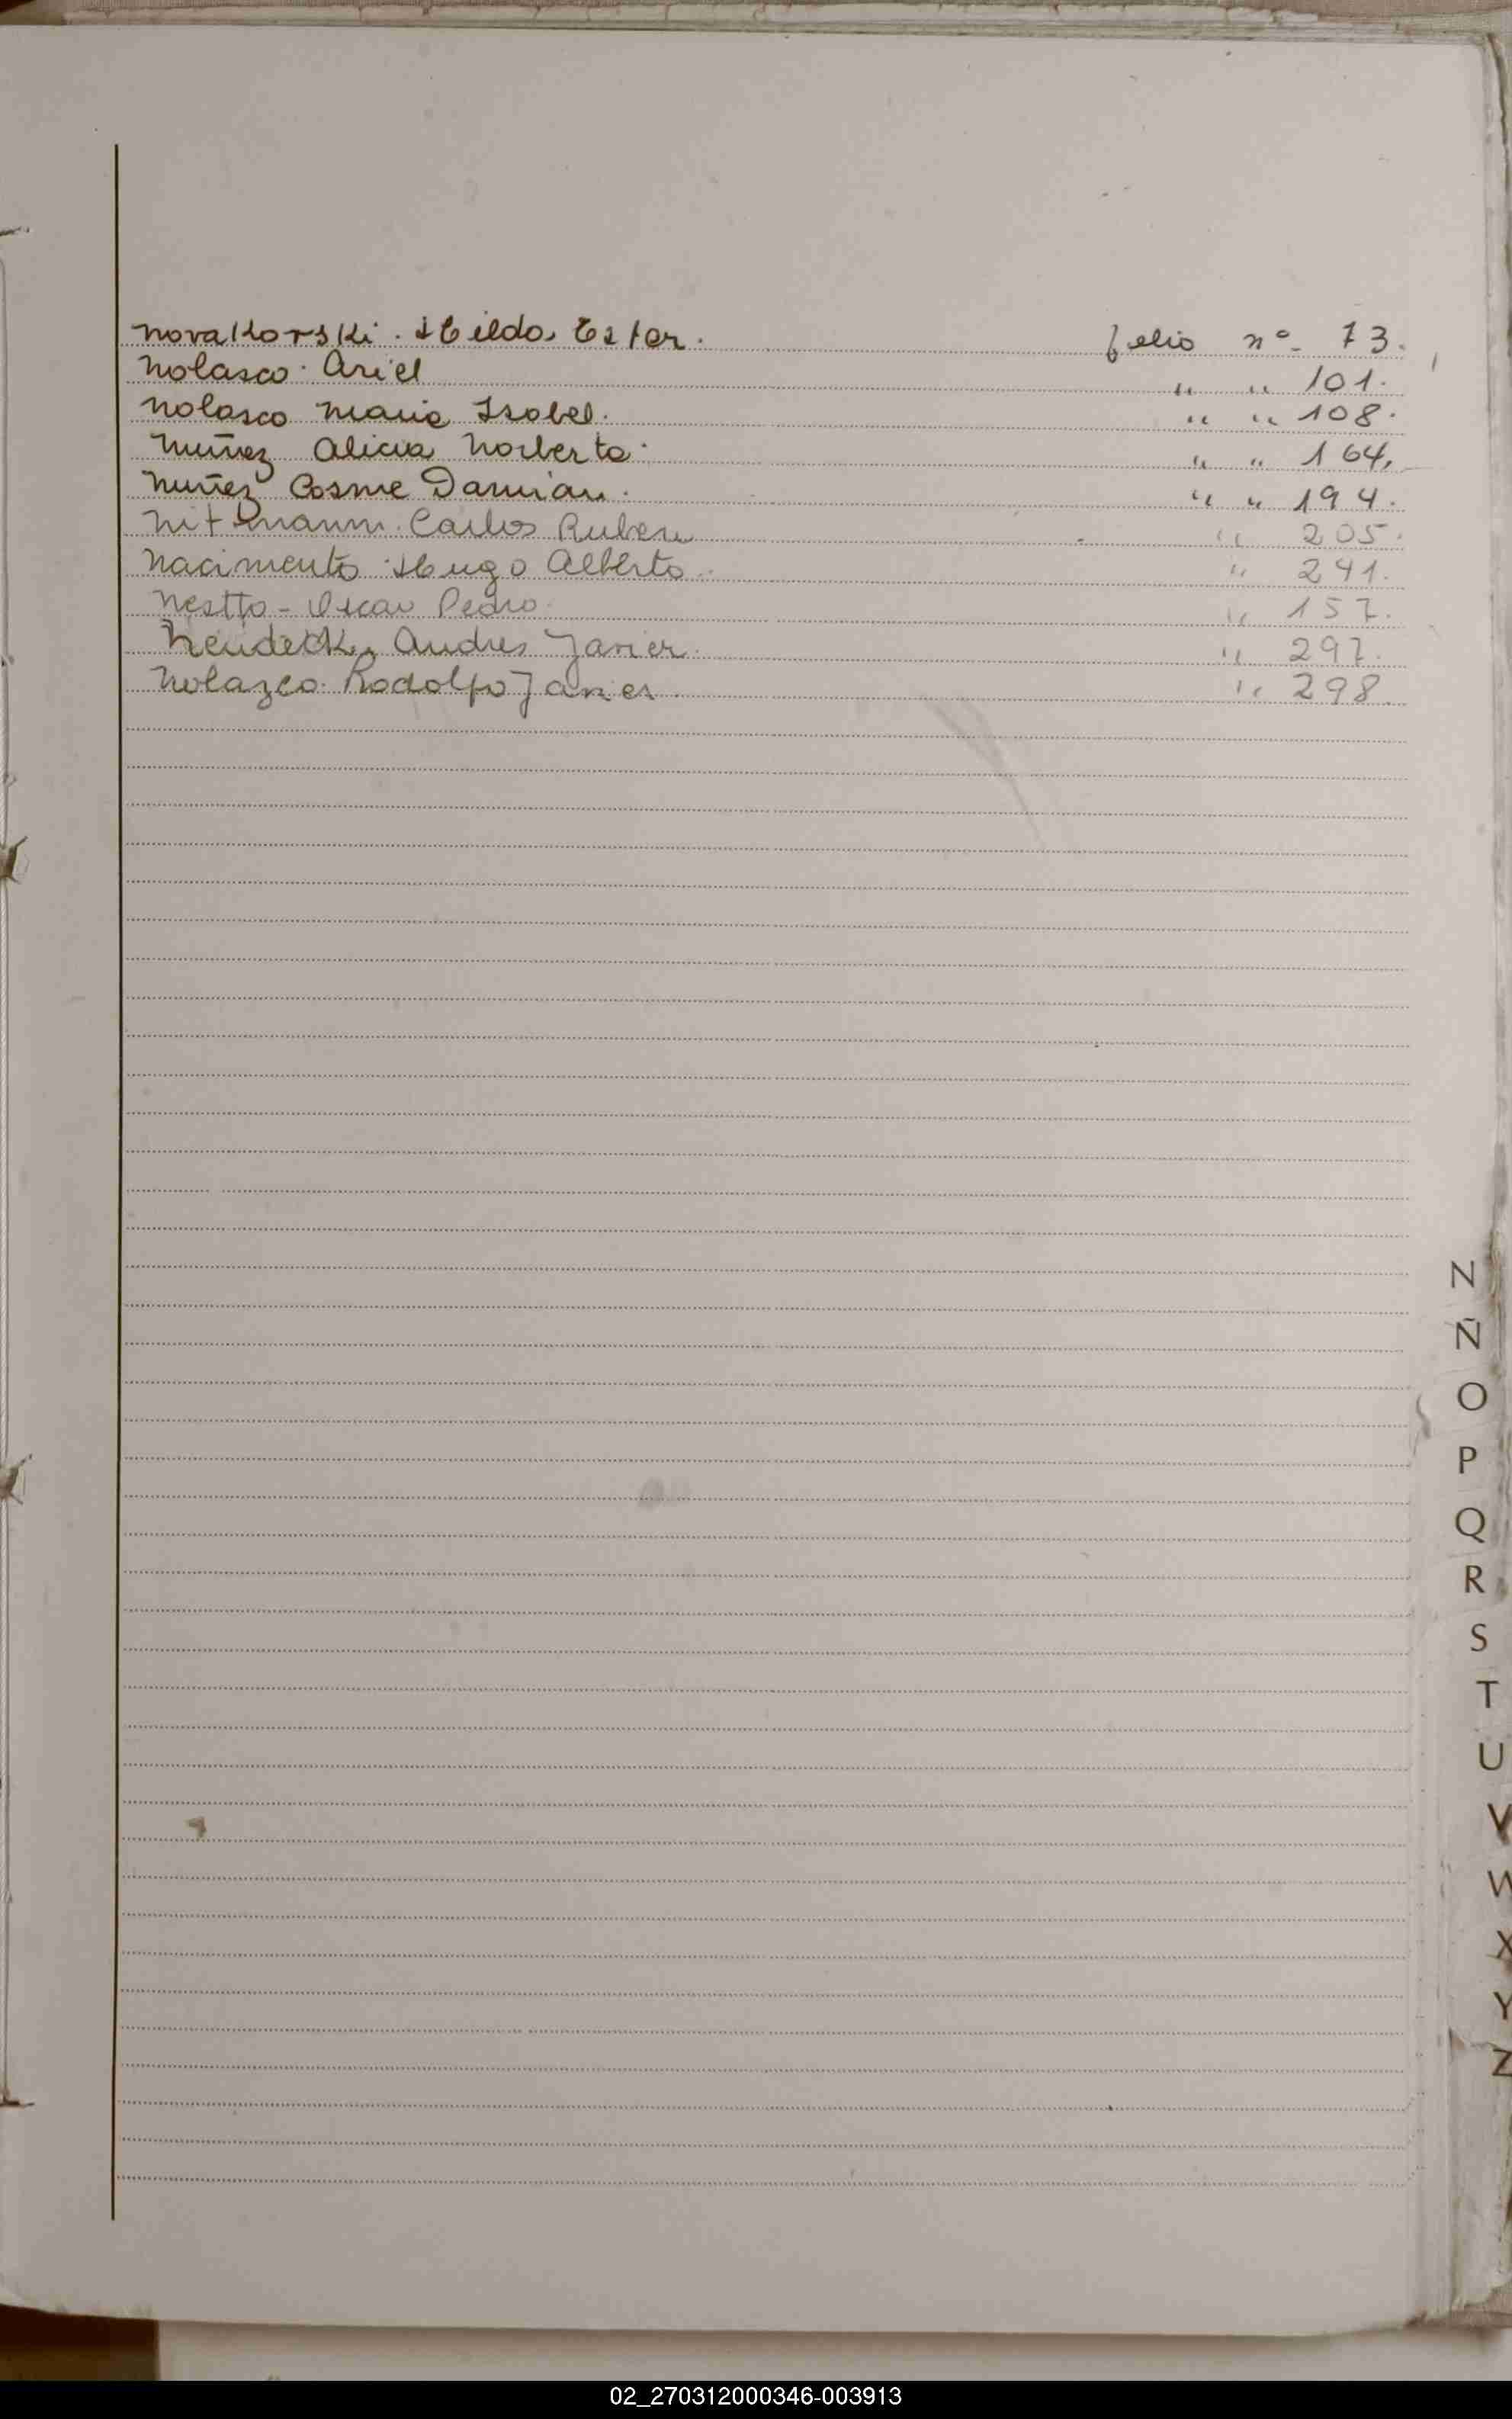 Novakorski. Hilda Ester. folio nº- 73.
Nolasco. Ariel " " 101.
Nolasco Maria Isabel. " " 108.
Nuñez Alicia Norberta. " " 164.
Nuñez Cosme Damian. " " 194.
Nitmann. Carlos Ruben " 205.
Nacimento. Hugo Alberto. " 241.
Nestto - Oscar Pedro. " 157.
Neudeck, Andres Javier. " 297.
Nolazco. Rodolfo Javier. " 298.
N
Ñ
O
P
Q
R
S
T
U
V
W
X
Y
Z
02_270312000346-003913